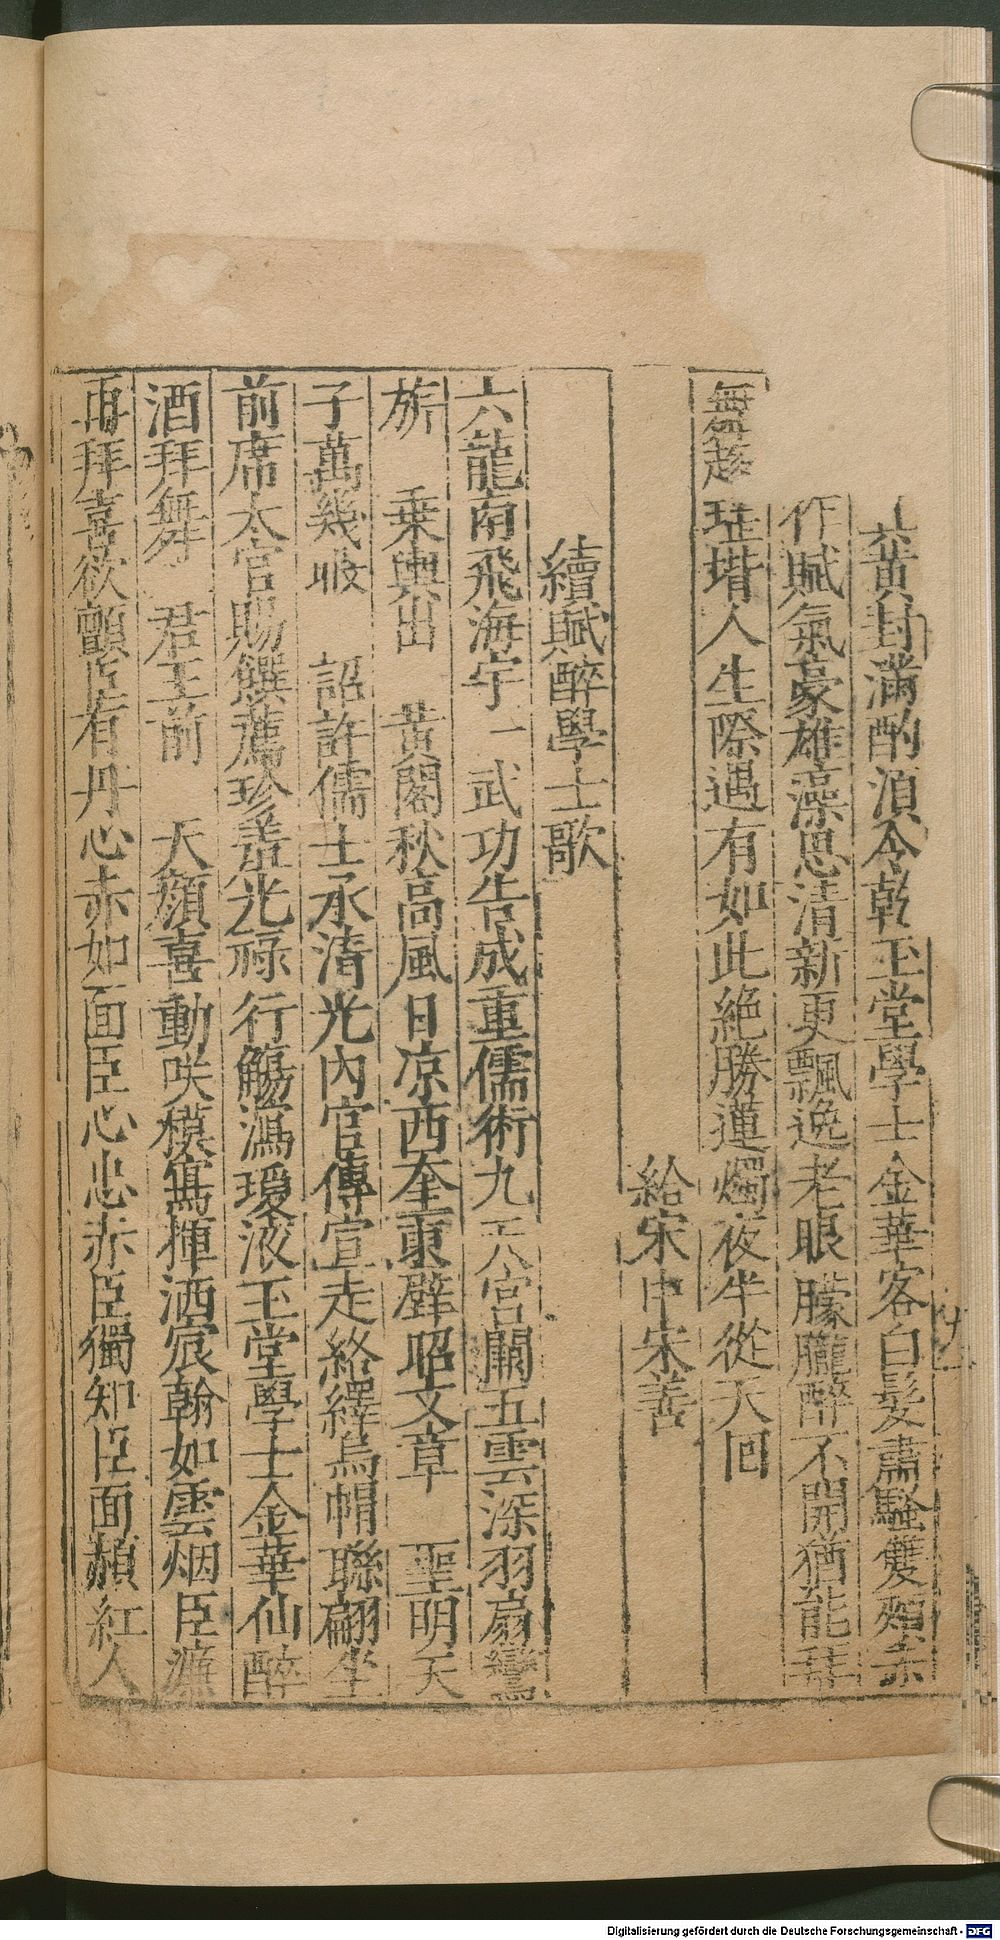 黄封滿酌湏令乾玉堂學士金華客白髮蕭騷雙頰赤
作賦氣豪雄藻思清新更飄逸老眼朦朧醉不開猶能拜
舞趍堦人生際遇有如此絶勝蓮燭夜半從天回
給宋申宋善
續賦醉學士歌
六龍南飛海宇一武功告成重儒術九天宮闕五雲深羽扇鸞
旂 乗輿出 黄閣秋高風日凉西奎東壁昭文章 聖明天
子萬幾收 詔許儒士承清光內官傳宣走絡繹烏帽聯翩坐
前席太官賜饌薦珍羞光禄行觴瀉瑷液玉堂學士金華仙醉
酒拜舞 君王前 天顔喜動咲模寫揮洒宸翰如雲烟臣濂
再拜喜欲顫臣有丹心赤如面臣心忠赤臣獨知臣面赬紅人
Digitalisierung gefördert durch die Deutsche Forschungsgemeinschaft - DFG